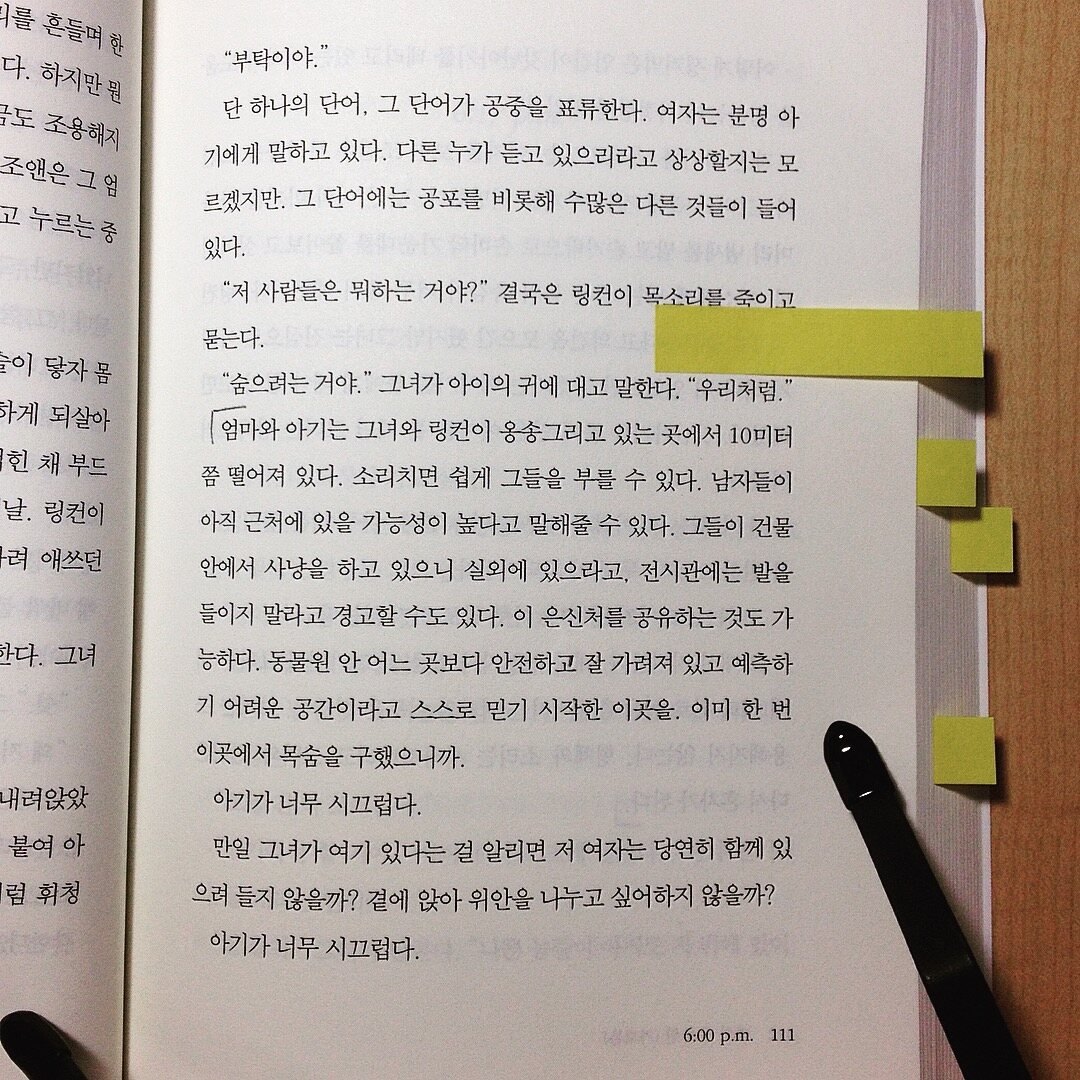 리를 흔들며 한
다. 하지만 뭔
금도 조용해지
조앤은 그 엄
고 누르는 중
술이 닿자 몸
하게 되살아
힌 채 부드
날. 링컨이
려 애쓰던
한다. 그녀
내려앉았
붙여 아
럼 휘청
“부탁이야.”
단 하나의 단어, 그 단어가 공중을 표류한다. 여자는 분명 아
기에게 말하고 있다. 다른 누가 듣고 있으리라고 상상할지는 모
르겠지만. 그 단어에는 공포를 비롯해 수많은 다른 것들이 들어
있다.
“저 사람들은 뭐하는 거야?” 결국은 링컨이 목소리를 죽이고
묻는다.
“숨으려는 거야.” 그녀가 아이의 귀에 대고 말한다. “우리처럼.”
엄마와 아기는 그녀와 링컨이 옹송그리고 있는 곳에서 10미터
쯤 떨어져 있다. 소리치면 쉽게 그들을 부를 수 있다. 남자들이
아직 근처에 있을 가능성이 높다고 말해줄 수 있다. 그들이 건물
안에서 사냥을 하고 있으니 실외에 있으라고, 전시관에는 발을
들이지 말라고 경고할 수도 있다. 이 은신처를 공유하는 것도 가
능하다. 동물원 안 어느 곳보다 안전하고 잘 가려져 있고 예측하
기 어려운 공간이라고 스스로 믿기 시작한 이곳을. 이미 한 번
이곳에서 목숨을 구했으니까.
아기가 너무 시끄럽다.
만일 그녀가 여기 있다는 걸 알리면 저 여자는 당연히 함께 있
으려 들지 않을까? 곁에 앉아 위안을 나누고 싶어하지 않을까?
아기가 너무 시끄럽다.
6:00 p.m. 111